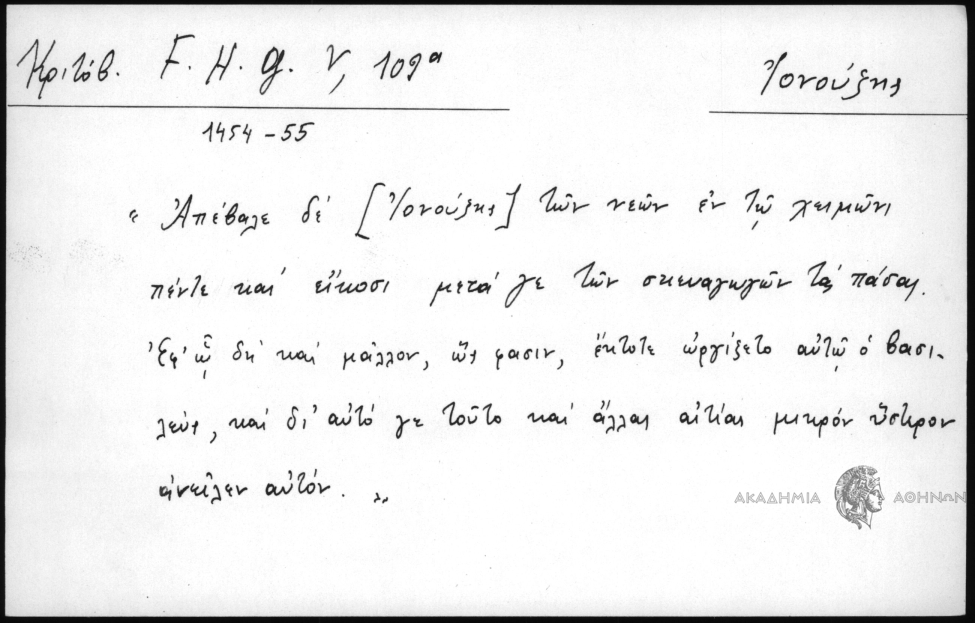 Κριτόβ. F. H. G. V, 109α
Ἰονούζης
1454-55
« Ἀπέβαλε δέ [Ἰονούζης] τῶν νεῶν ἐν τῷ χειμῶνι
πέντε καί εἴκοσι μετά γε τῶν σκευαγωγῶν τάς πάσας.
Ἐφ' ᾧ δή καί μᾶλλον, ὥς φασιν, ἔκτοτε ὠργίζετο αὐτῷ ὁ βασι-
λεύς, καί δι' αὐτό γε τοῦτο καί ἄλλας αἰτίας μικρόν ὕστερον
ἀνεῖλεν αὐτόν. »
ΑΚΑΔΗΜΙΑ ΑΘΗΝΩΝ